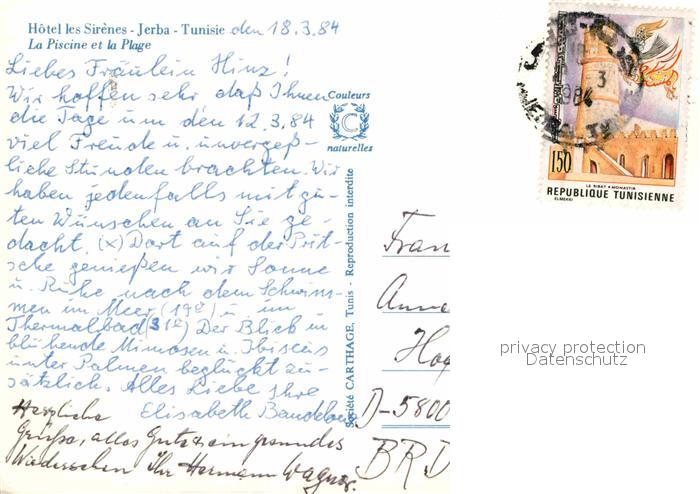 Hôtel les Sirènes - Jerba - Tunisie den 18.3.84
La Piscine et la Plage
Liebes Fräulein Hinz!
Wir hoffen sehr daß Ihnen
die Tage um den 12.3.84
viel Freude u. unvergeß-
liche Stunden brachten. Wir
haben jedenfalls mit gu-
ten Wünschen an Sie ge-
dacht. (x) Dort auf der Prit-
sche genießen wir Sonne
u. Ruhe nach dem Schwim-
men im Meer (19°) u. im
Thermalbad (31°) Der Blick in
blühende Mimosen u. Ibiscus
unter Palmen beglückt zu-
sätzlich. Alles Liebe Ihre
Elisabeth
Herzliche
Grüße, alles Gute + ein gesundes
Wiedersehen Ihr Hermann Wagner.
Couleurs
C
naturelles
Société CARTHAGE, Tunis - Reproduction interdite
150
LE RIBAT • MONASTIR
REPUBLIQUE TUNISIENNE
ELMEKKI
3
1984
Frau
Anne
Hag
D-5800
BRD
privacy protection
Datenschutz